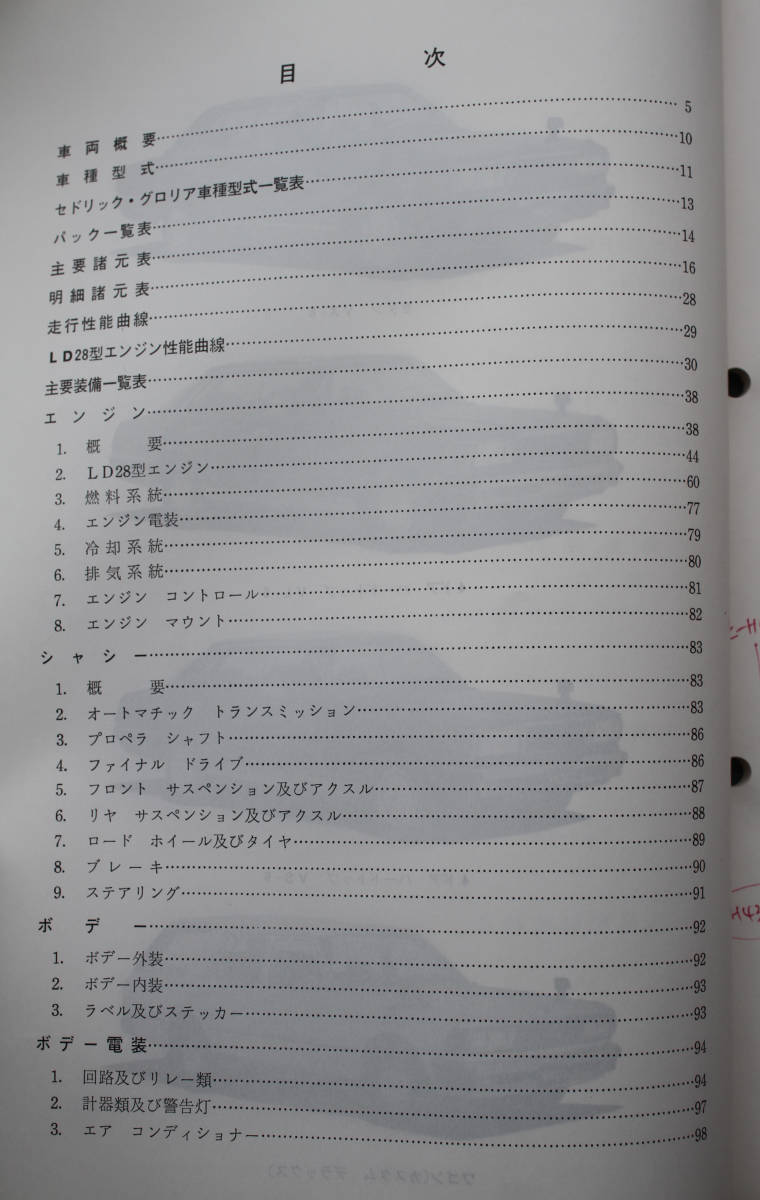 目　　次
車両概要……5
車種型式……10
セドリック・グロリア車種型式一覧表……11
パック一覧表……13
主要諸元表……14
明細諸元表……16
走行性能曲線……28
LD28型エンジン性能曲線……29
主要装備一覧表……30
エンジン……38
1. 概　要……38
2. LD28型エンジン……44
3. 燃料系統……60
4. エンジン電装……77
5. 冷却系統……79
6. 排気系統……80
7. エンジン　コントロール……81
8. エンジン　マウント……82
シャシー……83
1. 概　要……83
2. オートマチック　トランスミッション……83
3. プロペラ　シャフト……86
4. ファイナル　ドライブ……86
5. フロント　サスペンション及びアクスル……87
6. リヤ　サスペンション及びアクスル……88
7. ロード　ホイール及びタイヤ……89
8. ブレーキ……90
9. ステアリング……91
ボデー……92
1. ボデー外装……92
2. ボデー内装……93
3. ラベル及びステッカー……93
ボデー電装……94
1. 回路及びリレー類……94
2. 計器類及び警告灯……97
3. エア　コンディショナー……98